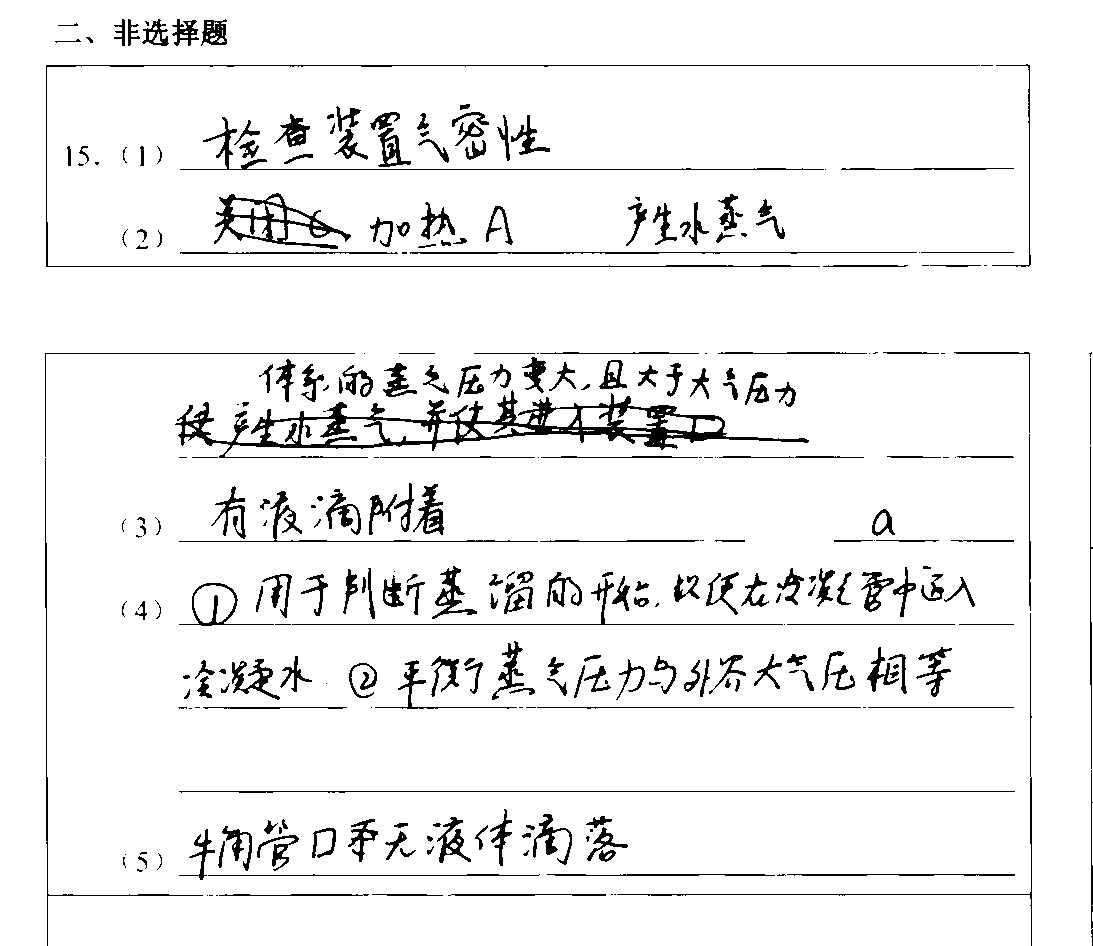 二、非选择题
15.（1） 检查装置气密性
（2） 加热A 产生水蒸气
体系的蒸气压力变大，且大于大气压力
使产生水蒸气，并使其进入装置D
（3） 有液滴附着 a
（4） ①用于判断蒸馏的开始，以便在冷凝管中通入
冷凝水 ②平衡蒸气压力与外界大气压相等
（5） 牛角管口无液体滴落